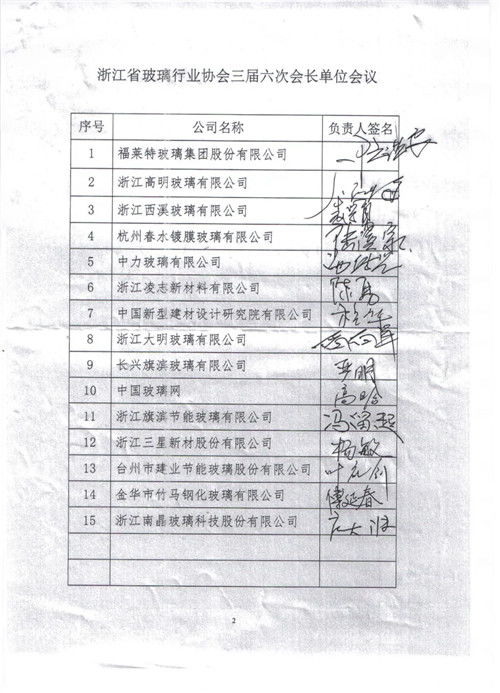 浙江省玻璃行业协会三届六次会长单位会议
序号 公司名称 负责人签名
1 福莱特玻璃集团股份有限公司
2 浙江高明玻璃有限公司
3 浙江西溪玻璃有限公司
4 杭州春水镀膜玻璃有限公司
5 中力玻璃有限公司
6 浙江凌志新材料有限公司 陈勇
7 中国新型建材设计研究院有限公司
8 浙江大明玻璃有限公司
9 长兴旗滨玻璃有限公司
10 中国玻璃网 高哈
11 浙江旗滨节能玻璃有限公司 冯溜起
12 浙江三星新材股份有限公司 杨敏
13 台州市建业节能玻璃股份有限公司
14 金华市竹马钢化玻璃有限公司 傅延春
15 浙江南晶玻璃科技股份有限公司
2